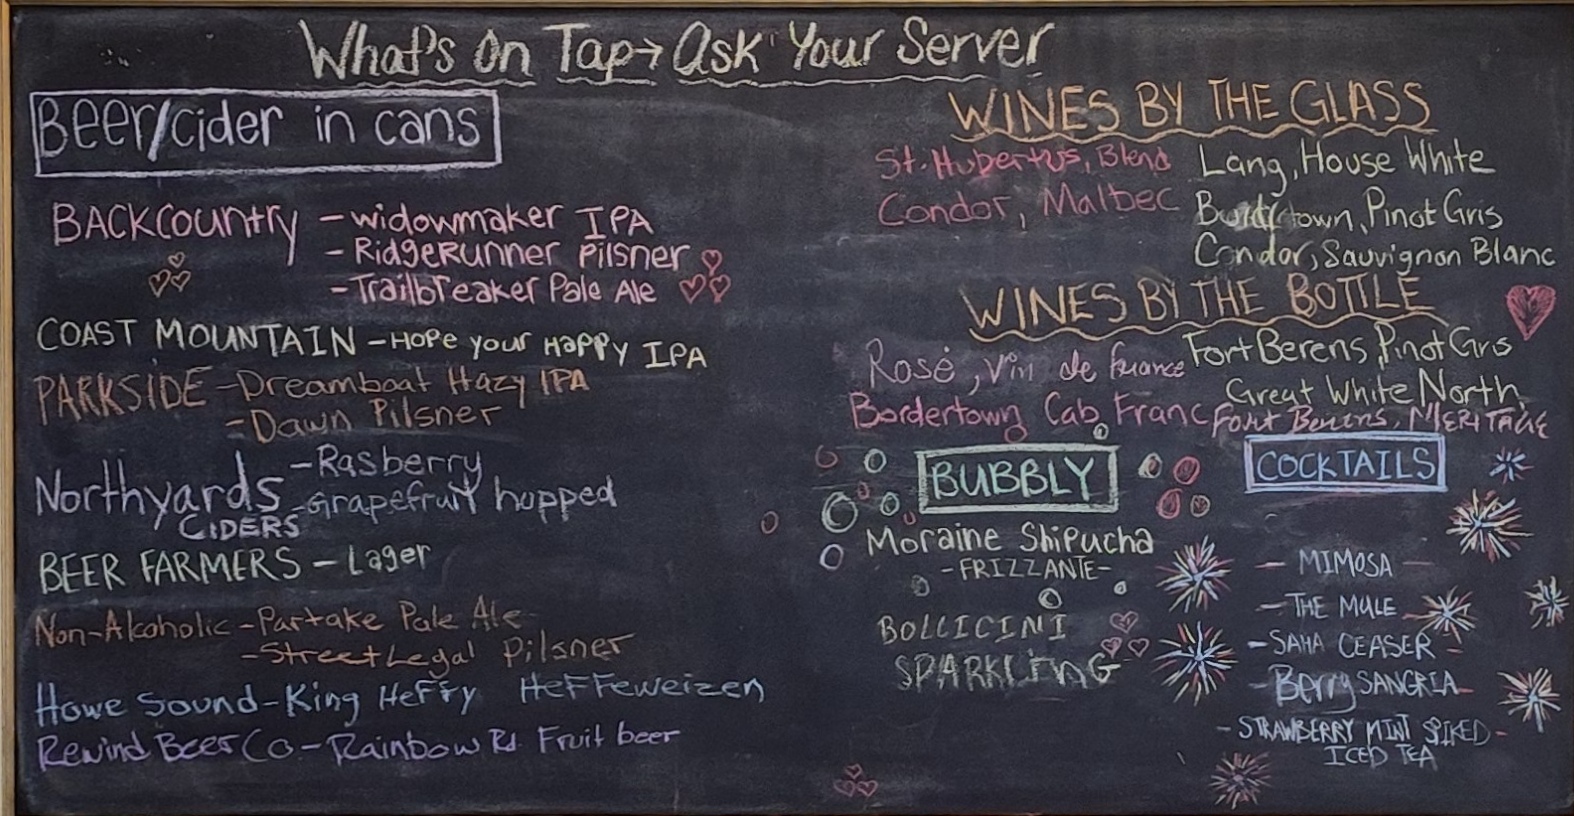 What's On Tap → Ask Your Server
Beer/cider in cans
BACKCOUNTRY - widowmaker IPA
- RidgeRunner Pilsner
- Trailbreaker Pale Ale
COAST MOUNTAIN - Hope your Happy IPA
PARKSIDE - Dreamboat Hazy IPA
- Dawn Pilsner
Northyards CIDERS - Rasberry
- Grapefruit hopped
BEER FARMERS - Lager
Non-Alcoholic - Partake Pale Ale
- Street Legal Pilsner
Howe Sound - King Heffy Heffeweizen
Rewind Beer Co - Rainbow Rd. Fruit beer
WINES BY THE GLASS
St. Hubertus, Blend
Condor, Malbec
Lang, House White
Pinot Gris
Condor, Sauvignon Blanc
WINES BY THE BOTTLE
Rosé, Vin de france
Bordertown Cab Franc
Fort Berens, Pinot Gris
Great White North
Fort Berens, MERITAGE
BUBBLY
Moraine Shipucha
- FRIZZANTE -
BOLLICINI
SPARKLING
COCKTAILS
- MIMOSA -
- THE MULE -
- SAHA CEASER -
- Berry SANGRIA -
- STRAWBERRY MINT SPIKED -
ICED TEA